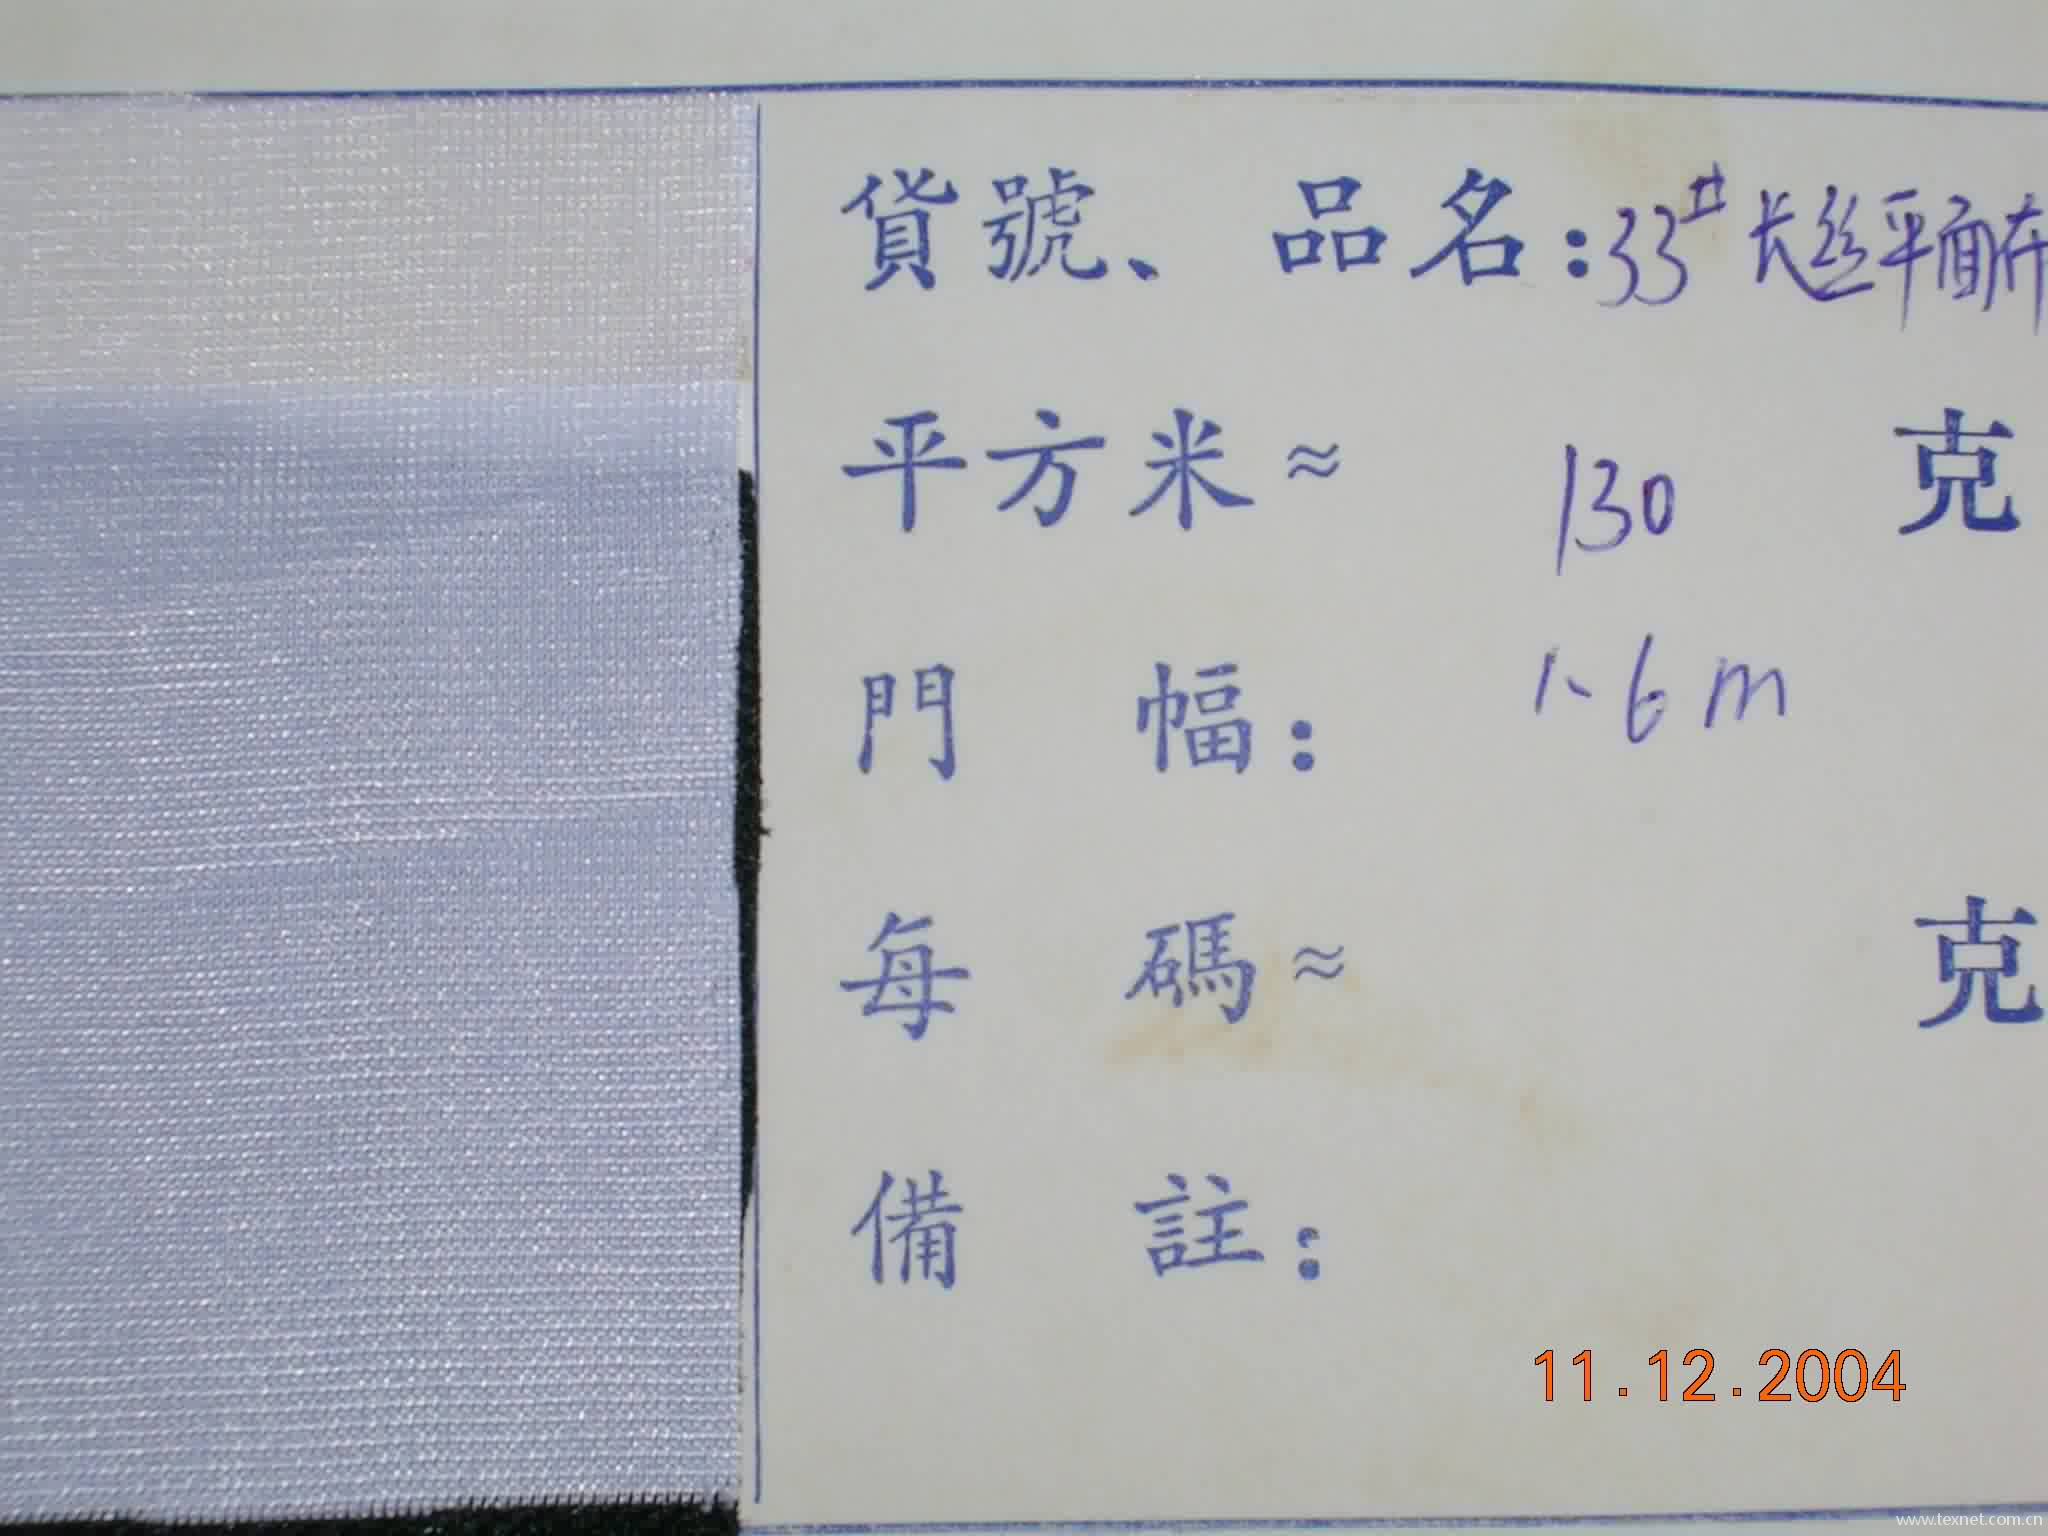 貨號、品名:33# 长丝平面布
平方米≈ 130 克
門幅: 1.6m
每碼≈ 克
備註:
11.12.2004
www.texnet.com.cn